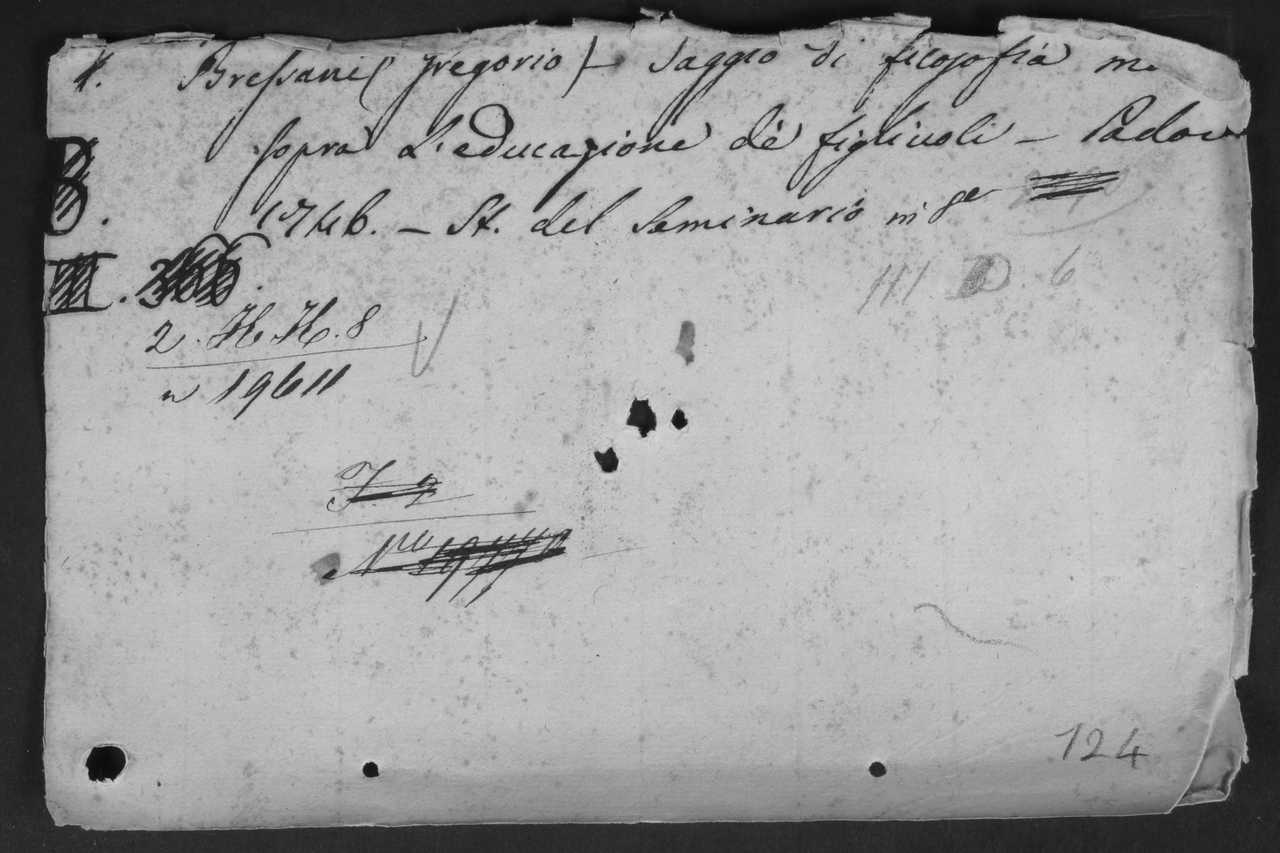 Bressani (Gregorio) - Saggio di filosofia m
sopra l'educazione dè figliuoli - Padova
B.
1746. - St. del Seminario in 8º
III.
III D. 6
2. H. H. 8
n 19611
F. 2
Nº
124